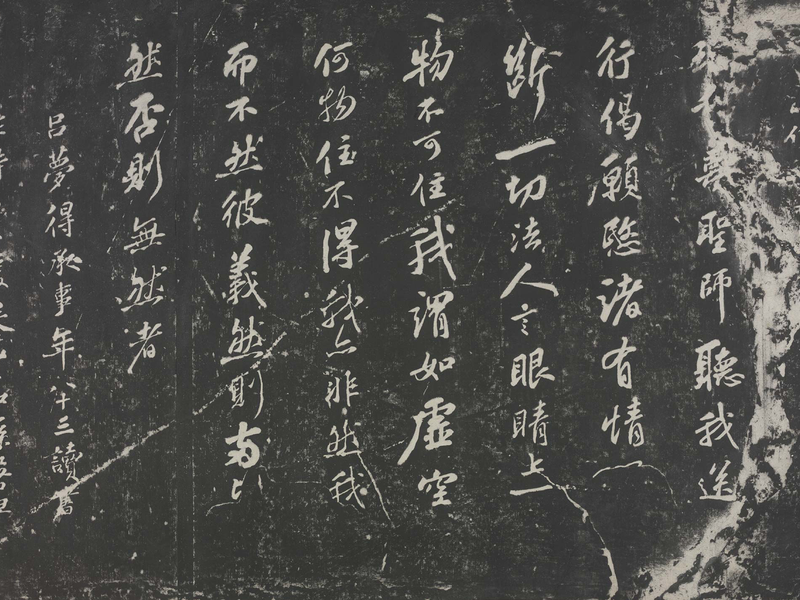 聖師聽我送
行偈願愍諸有情
斷一切法人言眼睛上
物不可住我謂如虛空
何物住不得我亦非然我
而不然彼義然則兩
然否則無然者
呂夢得承事年八十三讀書